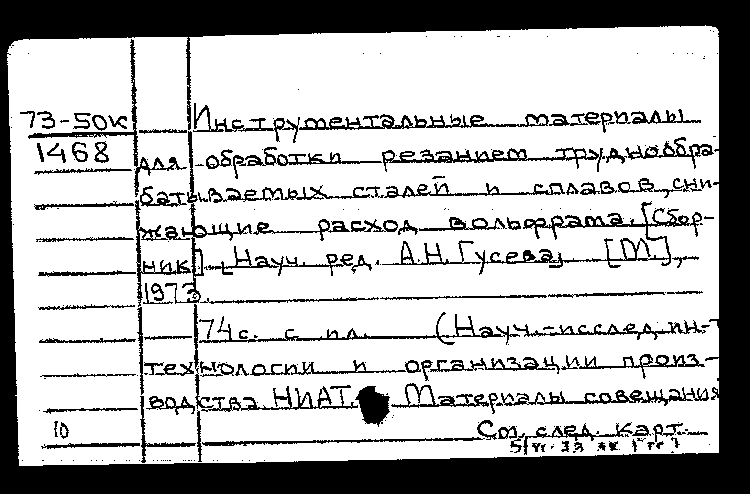 73-50к Инструментальные материалы
1468 для обработки резанием труднообра-
батываемых сталей и сплавов, сни-
жающие расход вольфрама. [Сбор-
ник]. [Науч. ред. А.Н. Гусева] [М.],
1973.
74 с. с ил. (Науч.-исслед. ин-т
технологии и организации произ-
водства НИАТ. Материалы совещания
10 См. след. карт.